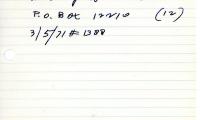 P.O. Box 12210 (12)
3/5/71 # 1388